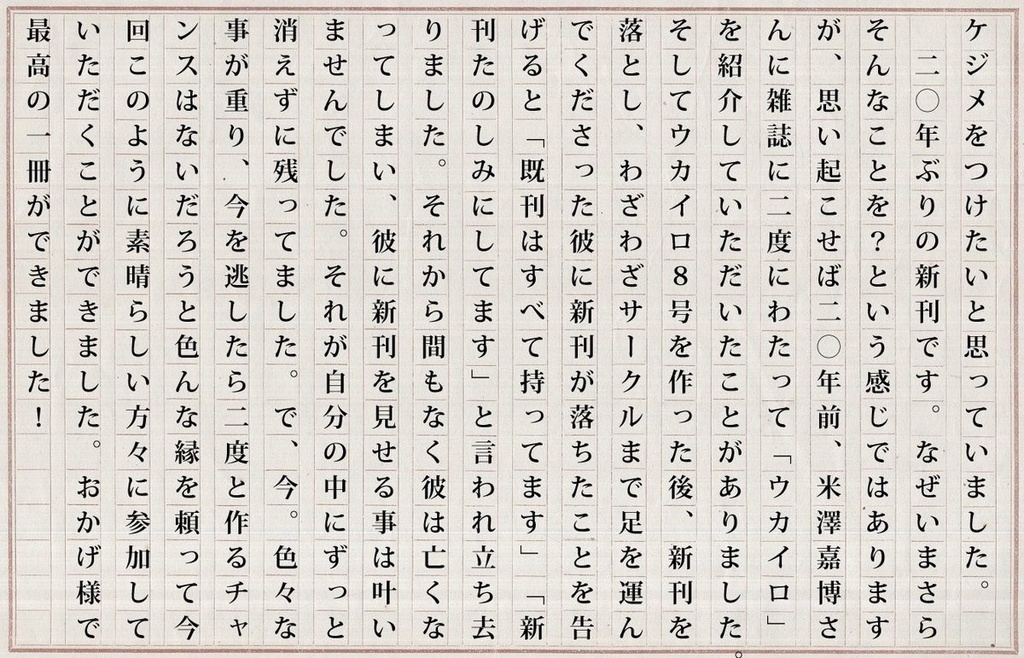 ケジメをつけたいと思っていました。
二〇年ぶりの新刊です。なぜいまさら
そんなことを？という感じではあります
が、思い起こせば二〇年前、米澤嘉博さ
んに雑誌に二度にわたって「ウカイロ」
を紹介していただいたことがありました。
そしてウカイロ８号を作った後、新刊を
落とし、わざわざサークルまで足を運ん
でくださった彼に新刊が落ちたことを告
げると「既刊はすべて持ってます」「新
刊たのしみにしてます」と言われ立ち去
りました。それから間もなく彼は亡くな
ってしまい、彼に新刊を見せる事は叶い
ませんでした。それが自分の中にずっと
消えずに残ってました。で、今。色々な
事が重り、今を逃したら二度と作るチャ
ンスはないだろうと色んな縁を頼って今
回このように素晴らしい方々に参加して
いただくことができました。おかげ様で
最高の一冊ができました！